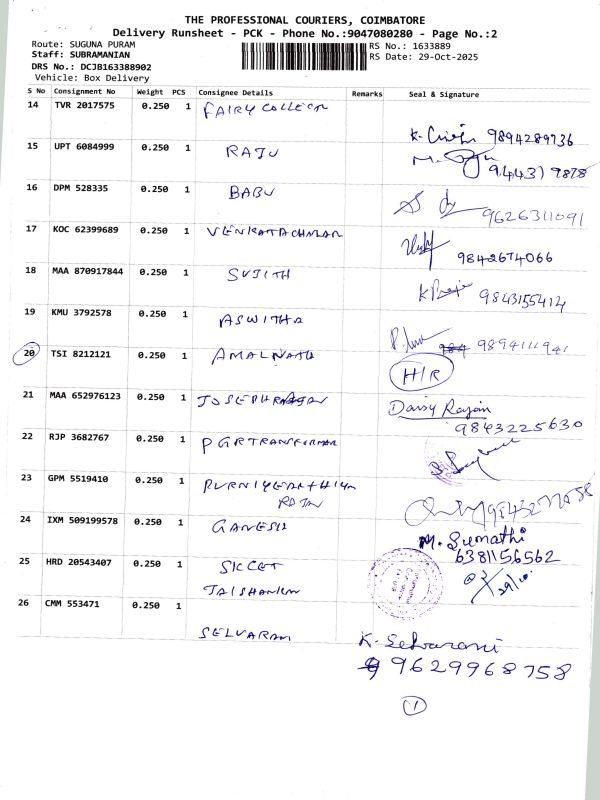 THE PROFESSIONAL COURIERS, COIMBATORE
Delivery Runsheet - PCK - Phone No.:9047080280 - Page No.:2
Route: SUGUNA PURAM
RS No.: 1633889
Staff: SUBRAMANIAN
RS Date: 29-Oct-2025
DRS No.: DCJB163388902
Vehicle: Box Delivery
S No Consignment No Weight PCS Consignee Details Remarks Seal & Signature
14 TVR 2017575 0.250 1 FAIRY COLLEON
9894289736
15 UPT 6084999 0.250 1 RAJU
M.
16 DPM 528335 0.250 1 BABU
9626311091
17 KOC 62399689 0.250 1 VENKATACHALAM
9842674066
18 MAA 870917844 0.250 1 SUJITH
9843155414
19 KMU 3792578 0.250 1 ASWITHA
20 TSI 8212121 0.250 1 AMALNATH
H/R
21 MAA 652976123 0.250 1 JOSEPHRAJAN Daisy Rajan
9843225630
22 RJP 3682767 0.250 1 PGRTRANSFORMAR
23 GPM 5519410 0.250 1
RAJAN
24 IXM 509199578 0.250 1 GANESH
M. Sumathi
6381156562
25 HRD 20543407 0.250 1 SKCET
29/10
JAISHANKAR
26 CMM 553471 0.250 1
SELVARANI K. Selvarani
9629968758
1